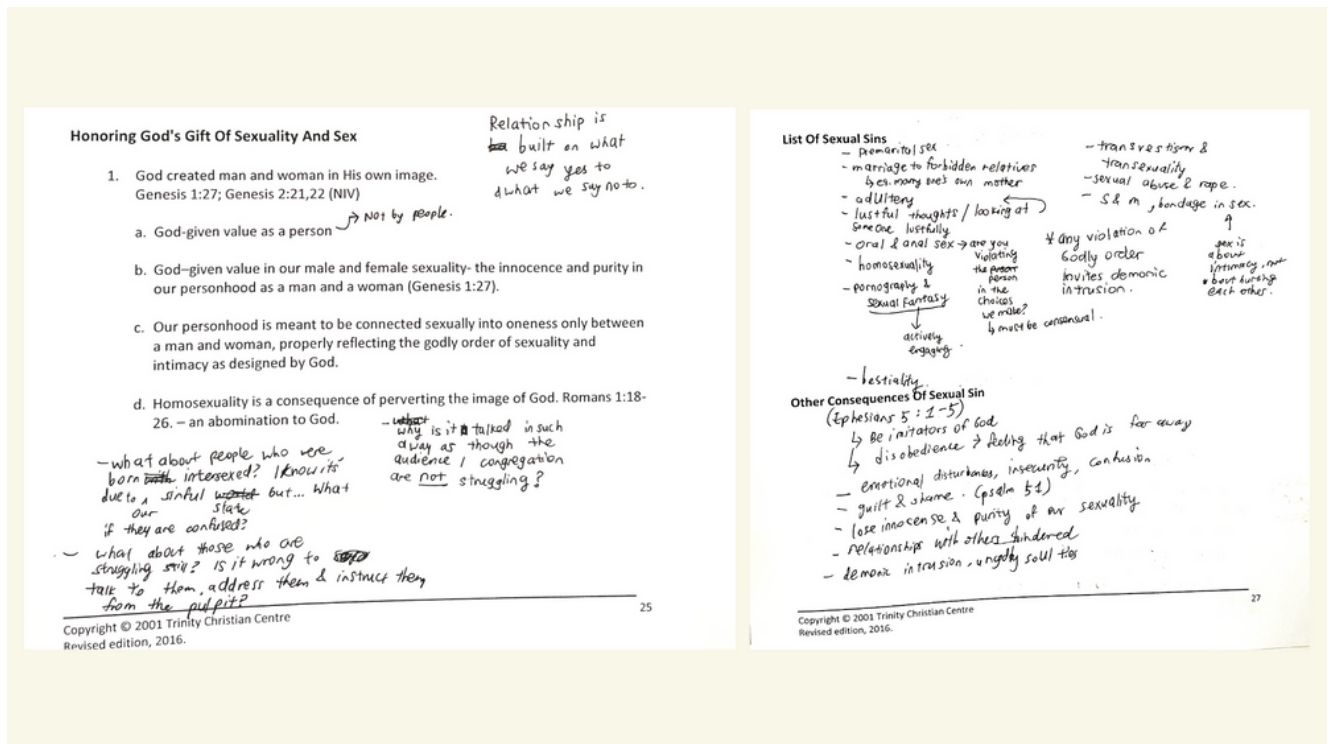 Honoring God's Gift Of Sexuality And Sex
Relationship is
built on what
we say yes to
& what we say no to.
1. God created man and woman in His own image.
Genesis 1:27; Genesis 2:21,22 (NIV)
→ Not by people.
a. God-given value as a person
b. God–given value in our male and female sexuality- the innocence and purity in
our personhood as a man and a woman (Genesis 1:27).
c. Our personhood is meant to be connected sexually into oneness only between
a man and woman, properly reflecting the godly order of sexuality and
intimacy as designed by God.
d. Homosexuality is a consequence of perverting the image of God. Romans 1:18-
26. – an abomination to God.
- what
why is it talked in such
a way as though the
audience / congregation
are not struggling?
- what about people who were
born with intersexed? I know its
due to our sinful world state but... what
if they are confused?
- what about those who are
struggling still? Is it wrong to
talk to them, address them & instruct them
from the pulpit?
25
Copyright © 2001 Trinity Christian Centre
Revised edition, 2016.
List Of Sexual Sins
- premarital sex
- marriage to forbidden relatives
↳ ex. marry one's own mother
- adultery
- lustful thoughts / looking at
someone lustfully
- oral & anal sex → are you
violating
the person
person
in the
choices
we make?
↳ must be consensual.
- homosexuality
- pornography &
sexual fantasy
↓
actively
engaging.
- bestiality.
- transvestism &
transexuality
- sexual abuse & rape.
- S & m, bondage in sex.
↑
sex is
about
intimacy, not
about hurting
each other.
* any violation of
Godly order
invites demonic
intrusion.
Other Consequences Of Sexual Sin
(Ephesians 5:1-5)
↳ Be imitators of God
↳ disobedience → feeling that God is far away
- emotional disturbances, insecurity, confusion
- guilt & shame. (psalm 51)
- lose innocence & purity of our sexuality
- relationships with others hindered
- demonic intrusion, ungodly soul ties
27
Copyright © 2001 Trinity Christian Centre
Revised edition, 2016.